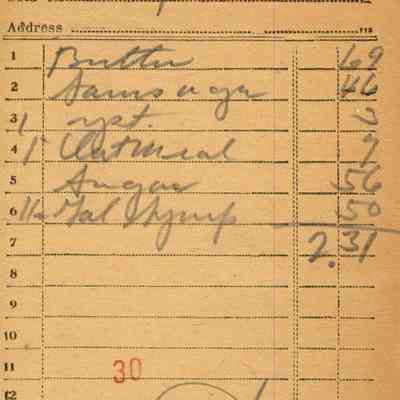 Address
1 Butter 69
2 Sausage
3 1 yst. 3
4 1 Oatmeal
5 Sugar 56
6 1/2 Gal Syrup 50
7 2.31
8
9
10
11 30
12